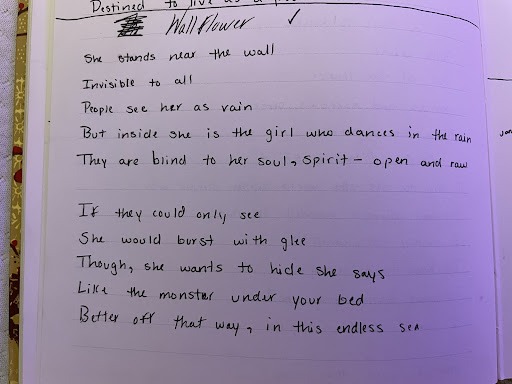 Destined to live as a
Wallflower ✓
She stands near the wall
Invisible to all
People see her as vain
But inside she is the girl who dances in the rain
They are blind to her soul, spirit - open and raw
If they could only see
She would burst with glee
Though, she wants to hide she says
Like the monster under your bed
Better off that way, in this endless sea